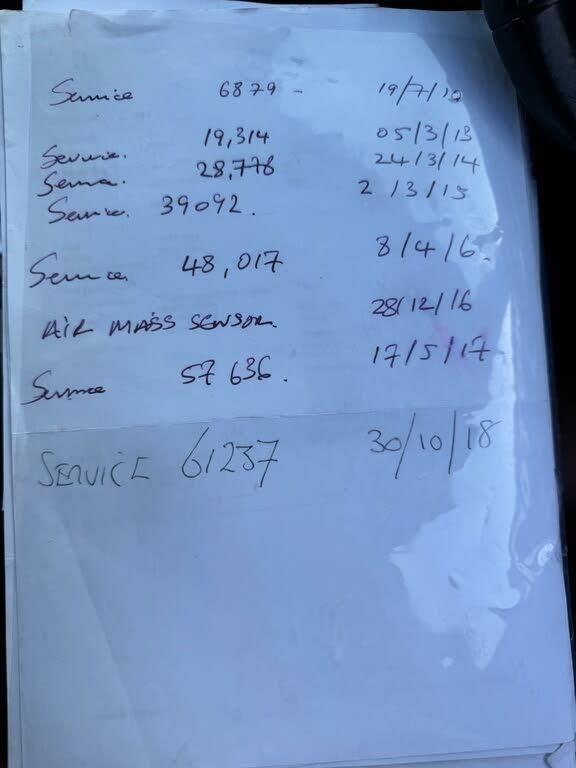 Service 6879 - 19/7/10
Service. 19,314 05/3/13
Service. 28,778 24/3/14
Service. 39092. 2/3/15
Service 48,017 8/4/16.
AIR MASS SENSOR. 28/12/16
Service 57636. 17/5/17
SERVICE 61237 30/10/18